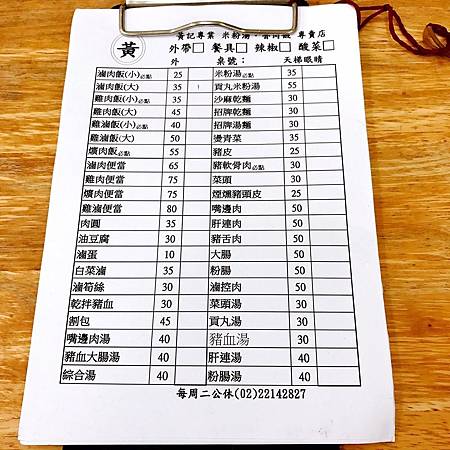 黃
黃記專業 米粉湯．魯肉飯 專賣店
外帶□ 餐具□ 辣椒□ 酸菜□
外 桌號： 天梯眼睛
滷肉飯(小)必點 25 米粉湯必點 35
滷肉飯(大) 35 貢丸米粉湯 55
雞肉飯(小)必點 35 沙麻乾麵 30
雞肉飯(大) 45 招牌乾麵 30
雞滷飯(小)必點 40 招牌湯麵 30
雞滷飯(大) 50 燙青菜 35
爌肉飯必點 55 豬皮 25
滷肉便當 65 豬軟骨肉必點 30
雞肉便當 75 菜頭 30
爌肉便當 75 煙燻豬頭皮 25
雞滷便當 80 嘴邊肉 50
肉圓 35 肝連肉 50
油豆腐 30 豬舌肉 50
滷蛋 10 大腸 50
白菜滷 35 粉腸 50
滷筍絲 30 滷控肉 50
乾拌豬血 30 菜頭湯 30
割包 45 貢丸湯 30
嘴邊肉湯 40 豬血湯 30
豬血大腸湯 40 肝連湯 40
綜合湯 40 粉腸湯 40
每周二公休(02)22142827